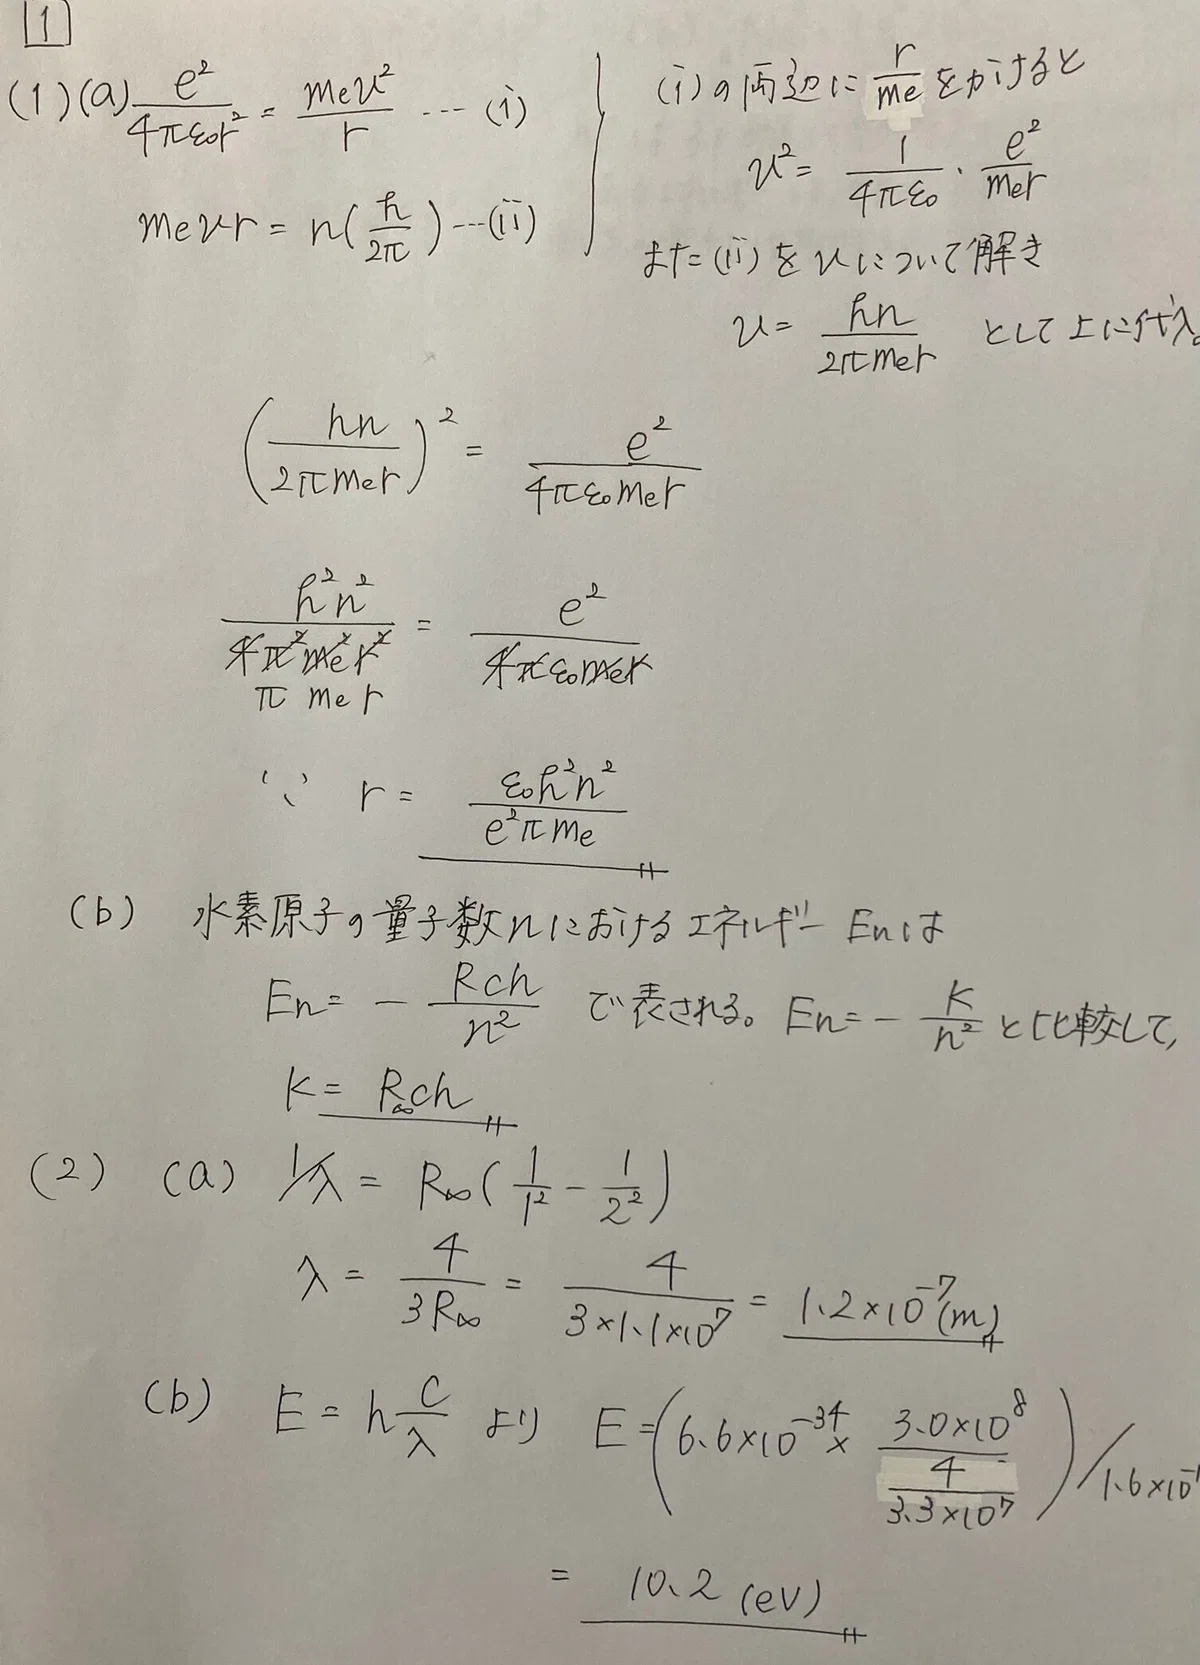 1
(1)(a) e²/4πε₀r² = mev²/r … (i)
mevr = n(h/2π) … (ii)
(i)の両辺に r/me をかけると
v² = 1/4πε₀ · e²/mer
また(ii)をvについて解き
v = hn/2πmer として上に代入。
(hn/2πmer)² = e²/4πε₀mer
h²n²/4π²me²r² = e²/4πε₀mer
π me r
∵ r = ε₀h²n²/e²πme
(b) 水素原子の量子数nにおけるエネルギーEnは
En = - Rch/n² で表される。En = - K/n² と比較して,
K = R∞ch
(2) (a) 1/λ = R∞(1/1² - 1/2²)
λ = 4/3R∞ = 4/3×1.1×10⁷ = 1.2×10⁻⁷(m)
(b) E = h c/λ より E = (6.6×10⁻³⁴ × 3.0×10⁸/(4/3.3×10⁷))/1.6×10⁻¹
= 10.2 (eV)